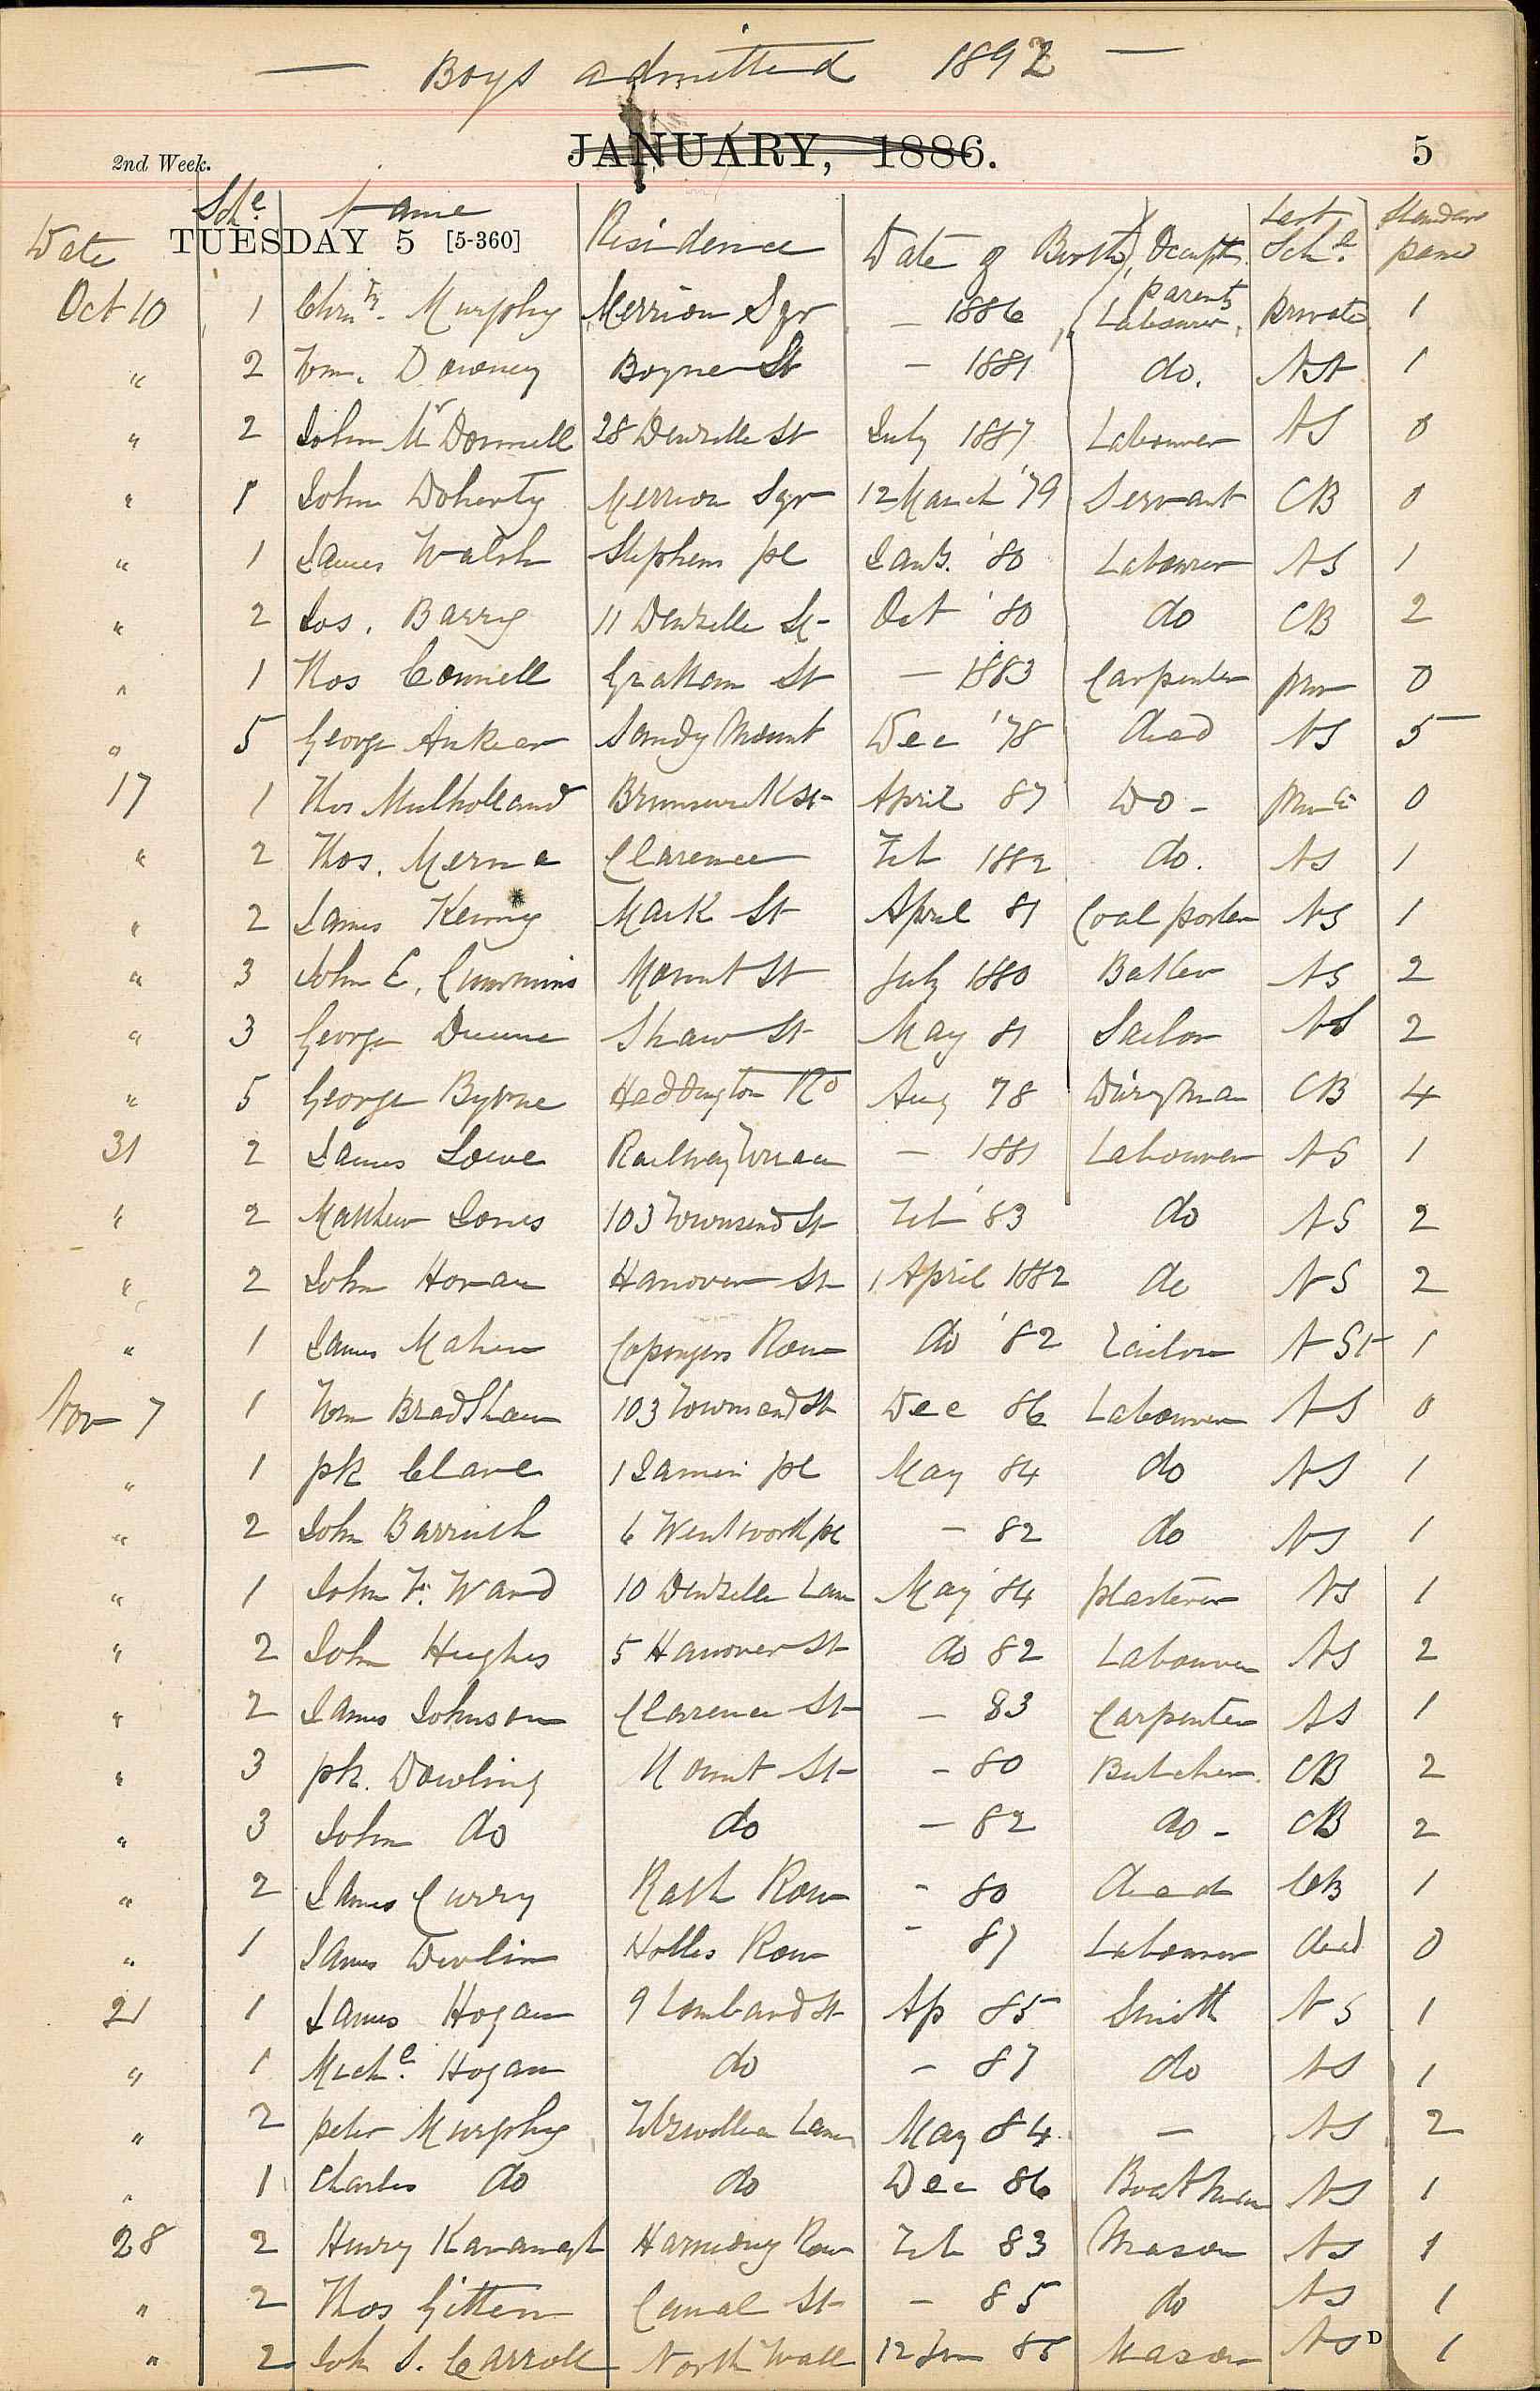 — Boys admitted 1892 —
JANUARY, 1886. 5
2nd Week.
TUESDAY 5 [5-360]
Date Sch.e Name Residence Date of Birth Occupt. parents Last Sch.e Standard
Oct 10 1 Murphy Merrion Sqr — 1886 Labourer private 1
" 2 Wm. Downey Boyne St — 1881 do. 1
" 2 John McDonnell 28 Denzille St July 1887 Labourer NS 0
" 1 John Doherty Merrion Sqr 12 March '79 Servant CB 0
" 1 James Walsh Stephens pl '80 Labourer NS 1
" 2 Jos. Barry 11 Denzille St Oct '80 do CB 2
" 1 Thos Connell Grattan St — 1883 Carpenter 0
" 5 George Sandy Mount Dec '78 dead NS 5
17 1 Thos Mulholland Brunswick St April 87 Do - 0
" 2 Thos. Clarence Feb 1882 do. NS 1
" 2 James Kenny Mark St April 81 Coal porter NS 1
" 3 John E. Cummins Mount St July 1880 Baker NS 2
" 3 George Dunne Shaw St May 81 Sailor NS 2
" 5 George Byrne Haddington Rd Aug 78 Dairyman CB 4
31 2 James Lowe Railway Terrace — 1881 Labourer NS 1
" 2 Matthew Jones 103 Townsend St Feb '83 do NS 2
" 2 John Horan Hanover St 1 April 1882 do NS 2
" 1 James Maher Row do '82 Tailor 1
Nov 7 1 Wm BradShaw 103 Townsend St Dec 86 Labourer NS 0
" 1 pk Clare 1 pl May 84 do NS 1
" 2 John 6 Wentworth pl — 82 do NS 1
" 1 John F. Ward 10 Denzille Lane May 84 plasterer NS 1
" 2 John Hughes 5 Hanover St do 82 Labourer NS 2
" 2 James Johnson Clarence St — 83 Carpenter NS 1
" 3 pk. Dowling Mount St - 80 Butcher CB 2
" 3 John do do — 82 do - CB 2
" 2 James Curry Rath Row - 80 dead CB 1
" 1 James Devlin Holles Row - 87 Labourer 0
21 1 James Hogan 9 Lombard St Ap 85 Smith NS 1
" 1 Michl. Hogan do - 87 do NS 1
" 2 peter Murphy Fitzwilliam Lane May 84 — NS 2
" 1 Charles do do Dec 86 Boatman NS 1
28 2 Henry Kavanagh Harmony Row Feb 83 Mason NS 1
" 2 Thos Gittens Canal St — 85 do NS 1
" 2 Carroll North Wall 12 Mason NS 1
D